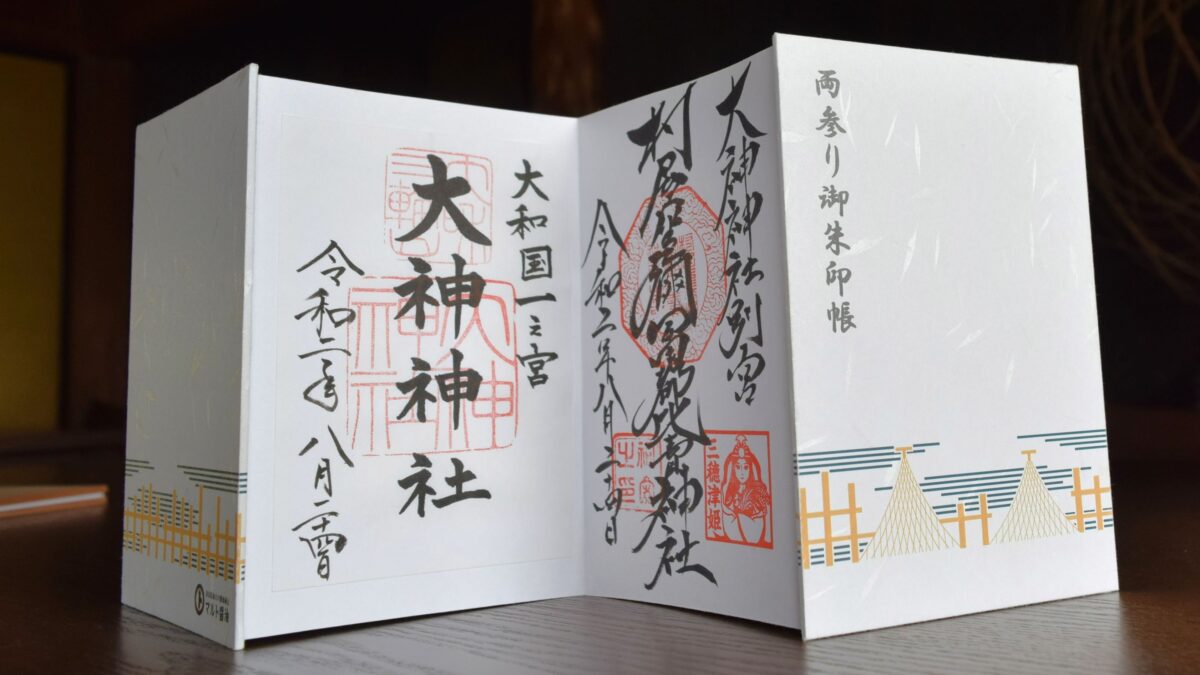 両参り御朱印帳
大神神社別宮
村屋坐彌冨都比賣神社
令和二年八月二十四日
三穂津姫
大和国一之宮
大神神社
大神神社
令和二年八月二十四日
マルト醤油